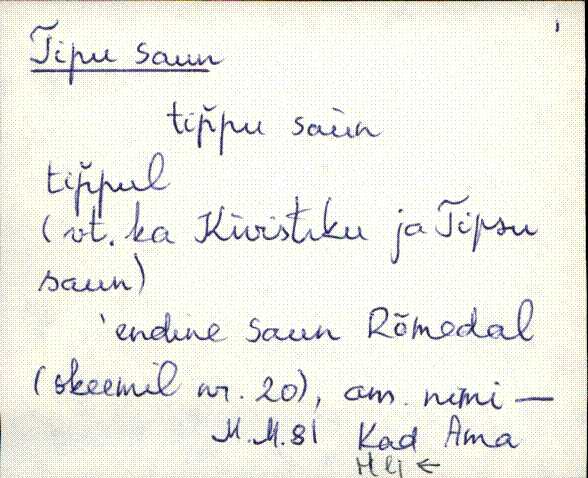 Tipu saun
tip̆pu saùn
tip̆pul
(vt. ka Kivistiku ja Tipsu
saun)
'endine saun Rõmedal
(skeemil nr. 20), am. nimi —
M.M.81 Kad Ama
Hlj ←